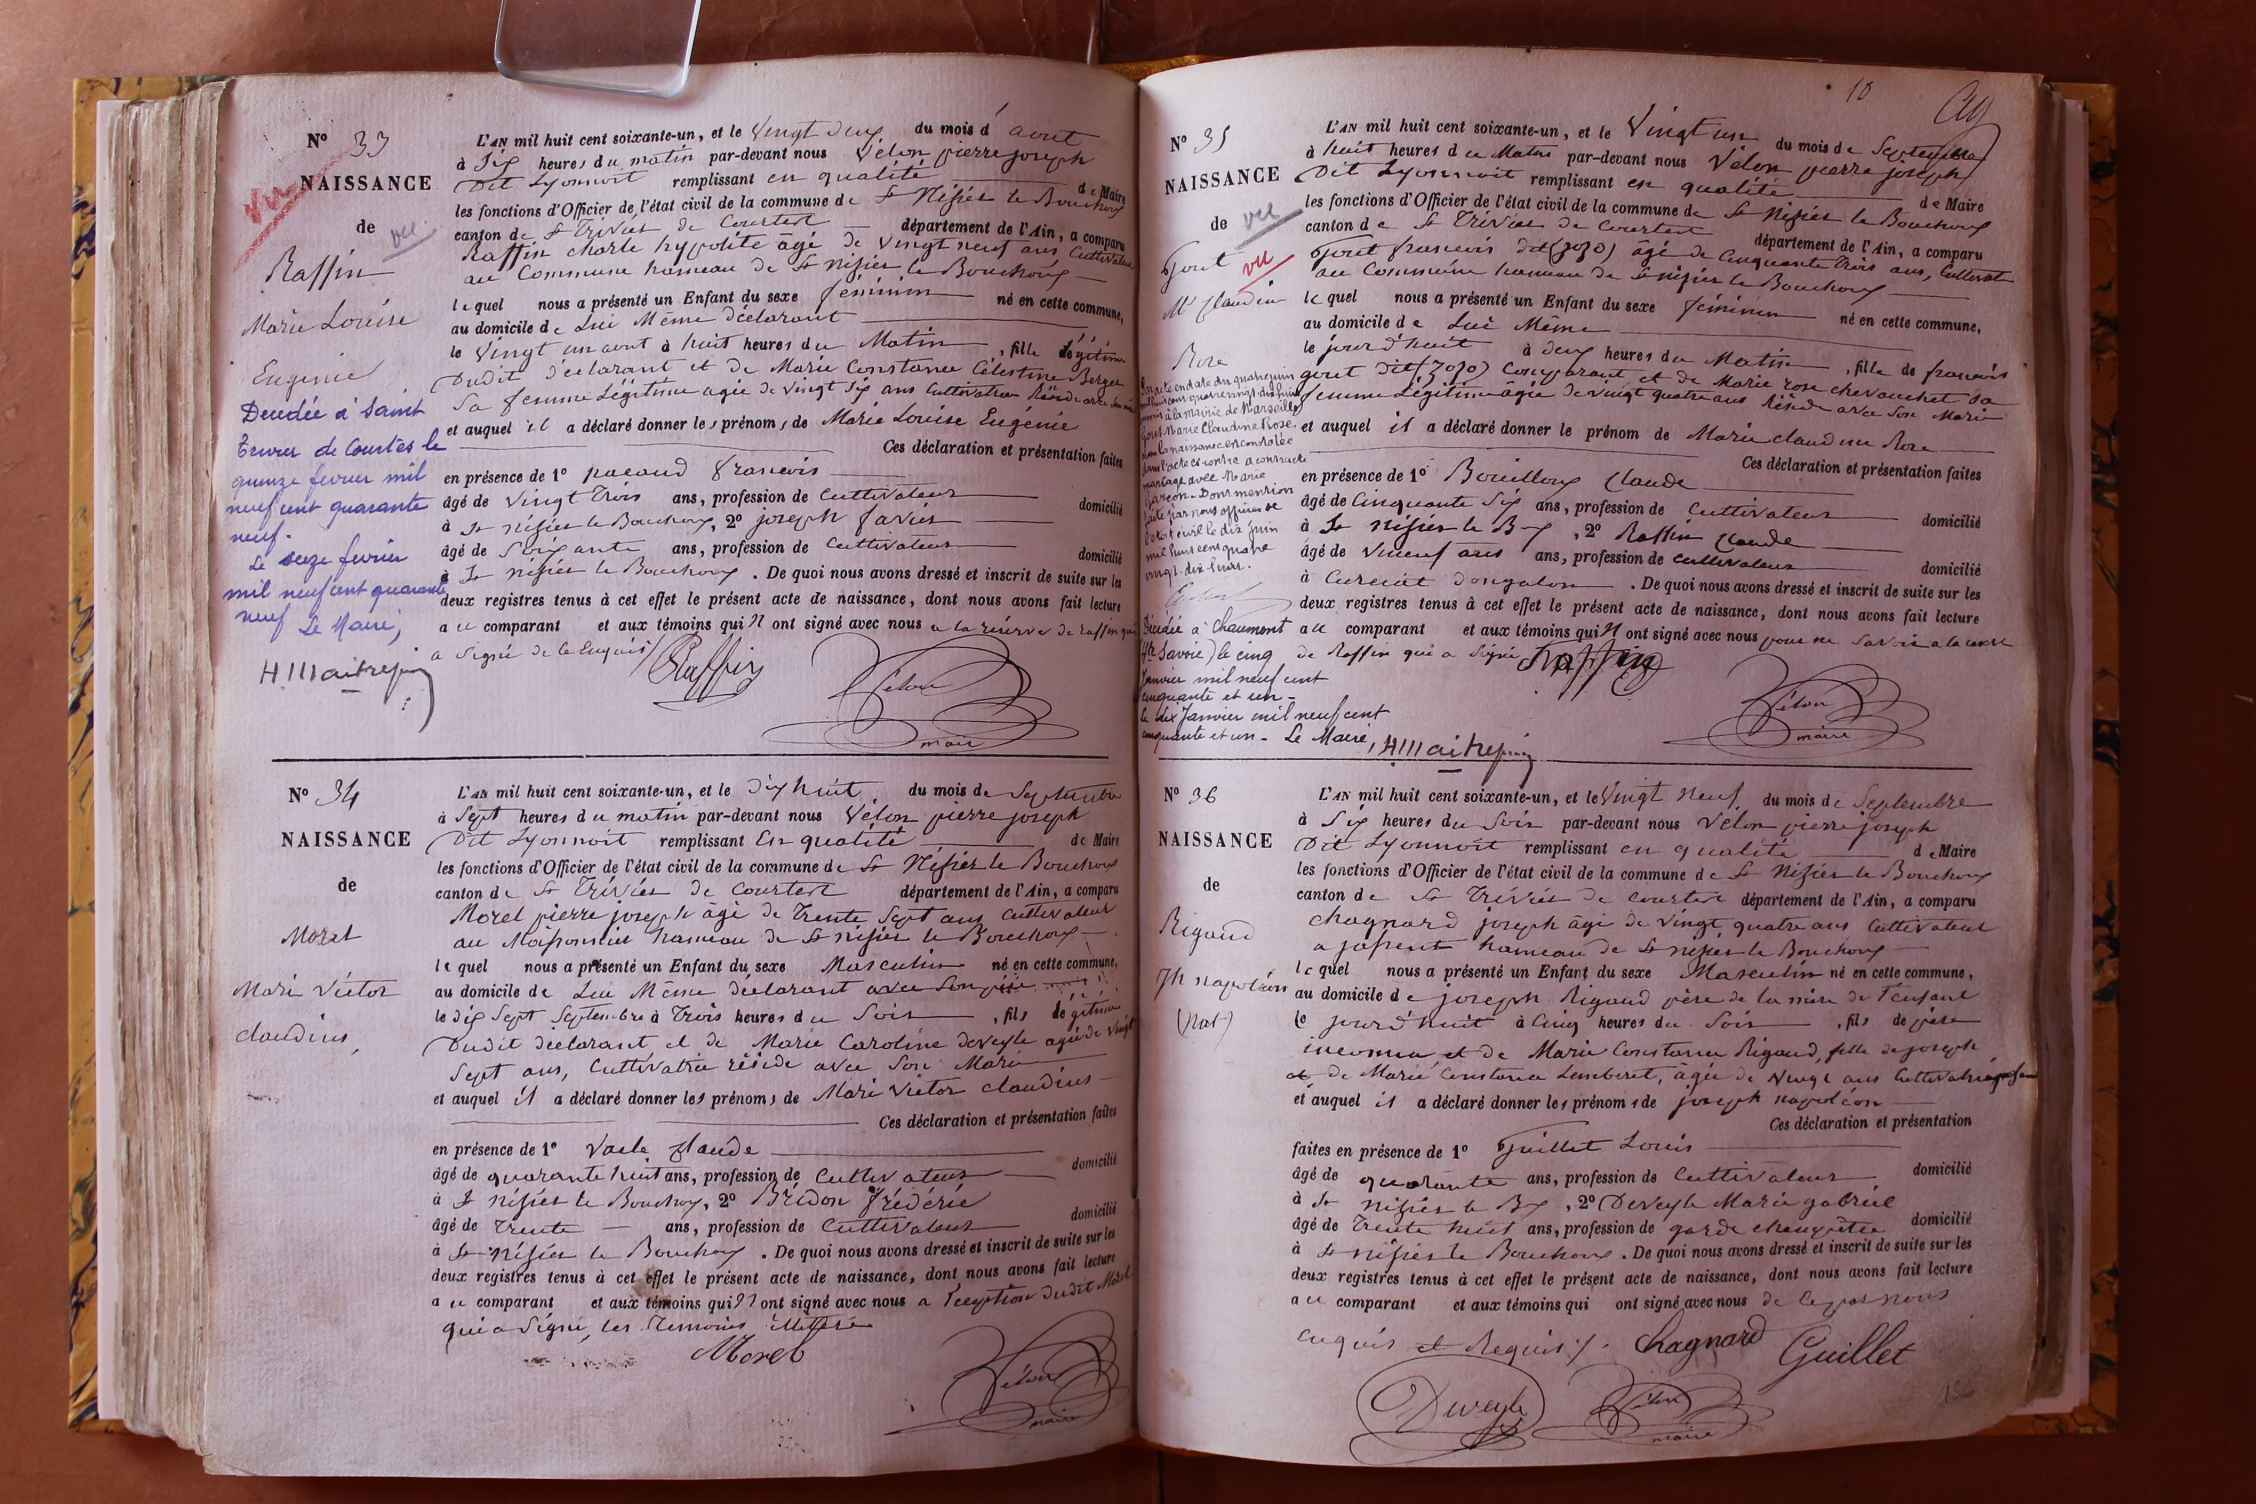 N° 33
NAISSANCE
de
vu
vu
Raffin
Marie Louise
Eugénie
Décédée à Saint
Trivier de Courtes le
quinze fevrier mil
neuf cent quarante
neuf.
Le seize fevrier
mil neuf cent quarante
neuf Le Maire,
L'AN mil huit cent soixante-un, et le Vingt deux du mois d'aout
à Six heures du matin par-devant nous Vélon pierre joseph
Dit Lyonnoit remplissant en qualité de Maire
les fonctions d'Officier de l'état civil de la commune de St Nisier le Bouchoux
canton de St Trivier de Courtest département de l'Ain, a comparu
Raffin charle hypolite âgé de vingt neuf ans, Cultivateur
au Commune hameau de St Nisier le Bouchoux
lequel nous a présenté un Enfant du sexe féminin né en cette commune,
au domicile de Lui Même déclarant
le Vingt un aout à huit heures du Matin, fille légitime
Dudit déclarant et de Marie Constance Célestine Berger
Sa femme Légitime agée de vingt Six ans Cultivatrice Réside avec son mari
et auquel il a déclaré donner les prénoms de Marie Louise Eugénie
Ces déclaration et présentation faites
en présence de 1° pacaud francois
âgé de vingt trois ans, profession de Cultivateur domicilié
à St Nisier le Bouchoux, 2° joseph favier
âgé de Soixante ans, profession de Cultivateur domicilié
à St Nisier le Bouchoux. De quoi nous avons dressé et inscrit de suite sur les
deux registres tenus à cet effet le présent acte de naissance, dont nous avons fait lecture
au comparant et aux témoins qui n'ont signé avec nous a la réserve de raffin qui
a Signé de ce Enquis / Raffin
Vélon
maire
N° 34
NAISSANCE
de
Morel
Mari Victor
claudius
L'AN mil huit cent soixante-un, et le dix huit du mois de Septembre
à Sept heures du matin par-devant nous Vélon pierre joseph
Dit Lyonnoit remplissant En qualité de Maire
les fonctions d'Officier de l'état civil de la commune de St Nisier le Bouchoux
canton de St Trivier de Courtest département de l'Ain, a comparu
Morel pierre joseph âgé de trente Sept ans Cultivateur
au Moissonnier hameau de St nisier le Bouchoux
lequel nous a présenté un Enfant du sexe Masculin né en cette commune,
au domicile de Lui Même déclarant avec Son père
le dix Sept Septembre à trois heures du Soir, fils légitime
Dudit déclarant et de Marie Caroline deveyle agée de vingt
Sept ans, Cultivatrice réside avec Son Mari
et auquel il a déclaré donner les prénoms de Mari Victor claudius
Ces déclaration et présentation faites
en présence de 1° Vacle Claude
âgé de quarante huit ans, profession de Cultivateur domicilié
à St Nisier le Bouchoux, 2° Brédon frédéric
âgé de trente ans, profession de Cultivateur domicilié
à St Nisier le Bouchoux. De quoi nous avons dressé et inscrit de suite sur les
deux registres tenus à cet effet le présent acte de naissance, dont nous avons fait lecture
au comparant et aux témoins qui n'ont signé avec nous a l'exception dudit Morel
qui a Signé, les témoins illettré
Morel
Vélon
maire
10
N° 35
NAISSANCE
de
vu
vu
Gout
Mie Claudine
Rose
Par acte en date du quatre juin
mil huit cent quatre vingt dix huit
à la mairie de Marseille
Gout Marie Claudine Rose
dont la naissance est constatée
dans l'acte ci-contre a contracté
mariage avec Marie
Garçon. Dont mention
faite par nous officier de
l'état civil le dix juin
mil huit cent quatre
vingt-dix-huit.
Décédée à Chaumont
(Hte Savoie) le cinq
Janvier mil neuf cent
cinquante et un -
le dix Janvier mil neuf cent
cinquante et un - Le Maire,
L'AN mil huit cent soixante-un, et le Vingt un du mois de Septembre
à huit heures du Matin par-devant nous Vélon pierre joseph
Dit Lyonnoit remplissant en qualité de Maire
les fonctions d'Officier de l'état civil de la commune de St Nisier le Bouchoux
canton de St Trivier de Courtest département de l'Ain, a comparu
Gout francois dit (zozo) âgé de Cinquante trois ans, Cultivat
au Commune hameau de St nisier le Bouchoux
lequel nous a présenté un Enfant du sexe féminin né en cette commune,
au domicile de Lui Même
le jour d'huit à deux heures du Matin, fille de francois
gout dit (zozo) Comparant et de Marie rose chevauchet sa
femme Légitime âgée de vingt quatre ans Réside avec Son Mari
et auquel il a déclaré donner le prénom de Marie claudine Rose
Ces déclaration et présentation faites
en présence de 1° Bouilloux Claude
âgé de Cinquante Six ans, profession de Cultivateur domicilié
à St nisier le B-x, 2° Raffin Claude
âgé de ans, profession de Cultivateur domicilié
à Curciat dongalon. De quoi nous avons dressé et inscrit de suite sur les
deux registres tenus à cet effet le présent acte de naissance, dont nous avons fait lecture
au comparant et aux témoins qui n'ont signé avec nous pour ne Savoir a la
de Raffin qui a Signé Raffin
Vélon
maire
N° 36
NAISSANCE
de
Rigaud
Jh napoléon
(Nat)
L'AN mil huit cent soixante-un, et le Vingt Neuf du mois de Septembre
à Six heures du Soir par-devant nous Vélon pierre joseph
Dit Lyonnoit remplissant en qualité de Maire
les fonctions d'Officier de l'état civil de la commune de St Nisier le Bouchoux
canton de St Trévier de Courtest département de l'Ain, a comparu
Chagnard joseph âgé de vingt quatre ans Cultivateur
a japrent hameau de St nisier le Bouchoux
lequel nous a présenté un Enfant du sexe Masculin né en cette commune,
au domicile de joseph Rigaud père de la mère de l'enfant
le jour d'huit à Cinq heures du Soir, fils de père
inconnu et de Marie Constance Rigaud, fille de joseph
et de Marie Constance Lamberet, âgée de vingt ans Cultivatrice
et auquel il a déclaré donner les prénoms de joseph napoléon
Ces déclaration et présentation
faites en présence de 1° Guillet Louis
âgé de quarante ans, profession de Cultivateur domicilié
à St nisier le Bx, 2° Deveyle Marie gabriel
âgé de trente huit ans, profession de garde champêtre domicilié
à St nisier le Bouchoux. De quoi nous avons dressé et inscrit de suite sur les
deux registres tenus à cet effet le présent acte de naissance, dont nous avons fait lecture
au comparant et aux témoins qui ont signé avec nous de ce par nous
enquis et Requis /. Chagnard Guillet
Deveyle
Vélon
maire